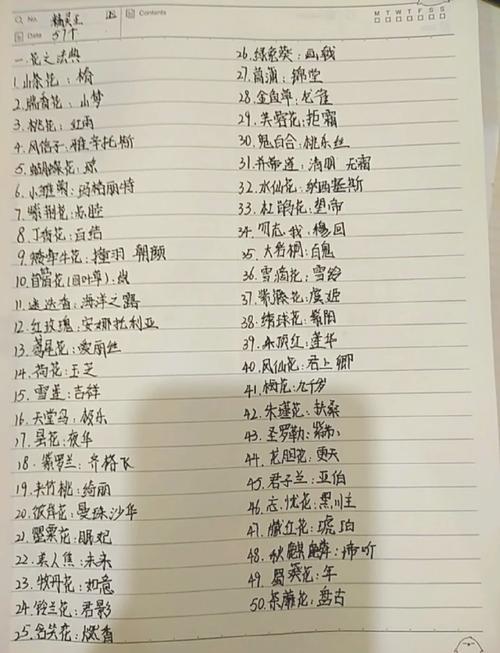 No. 精灵王
Contents
M T W T F S S
Date 51个
一.花之法典
1.山茶花:椿
2.瑞香花:山梦
3.桃花:红雨
4.风信子:雅辛托斯
5.蝴蝶花:球
6.小雏菊:玛格丽特
7.紫荆花:点腔
8.丁香花:百结
9.矮牵牛花:撞羽 朝颜
10.苜蓿花(四叶草):炭
11.迷迭香:海洋之露
12.红玫瑰:安娜托利亚
13.鸢尾花:爱丽丝
14.荷花:玉芝
15.雪莲:吉祥
16.天堂鸟:极乐
17.昙花:夜华
18.紫罗兰:齐格飞
19.夹竹桃:绮丽
20.彼岸花:曼珠沙华
21.罂粟花:眼妃
22.美人蕉:未来
23.牡丹花:如意
24.铃兰花:君影
25.含笑花:燃香
26.绿兔葵:画戟
27.菖蒲:锦堂
28.金鱼草:龙雀
29.芙蓉花:拒霜
30.鬼百合:桃乐丝
31.并蒂莲:清明 无霜
32.水仙花:纳西基斯
33.杜鹃花:望帝
34.勿忘我:穆回
35.大香榭:白鬼
36.雪滴花:雪铃
37.紫藤花:虞姬
38.绣球花:紫阳
39.朱顶红:莲华
40.凤仙花:君上卿
41.梅花:九分
42.朱莲花:扶桑
43.圣罗勒:紫苏
44.龙胆花:更天
45.君子兰:亚伯
46.忘忧花:黑川主
47.藏红花:琥珀
48.秋麒麟:谛听
49.蜀葵花:年
50.荼蘼花:盘古